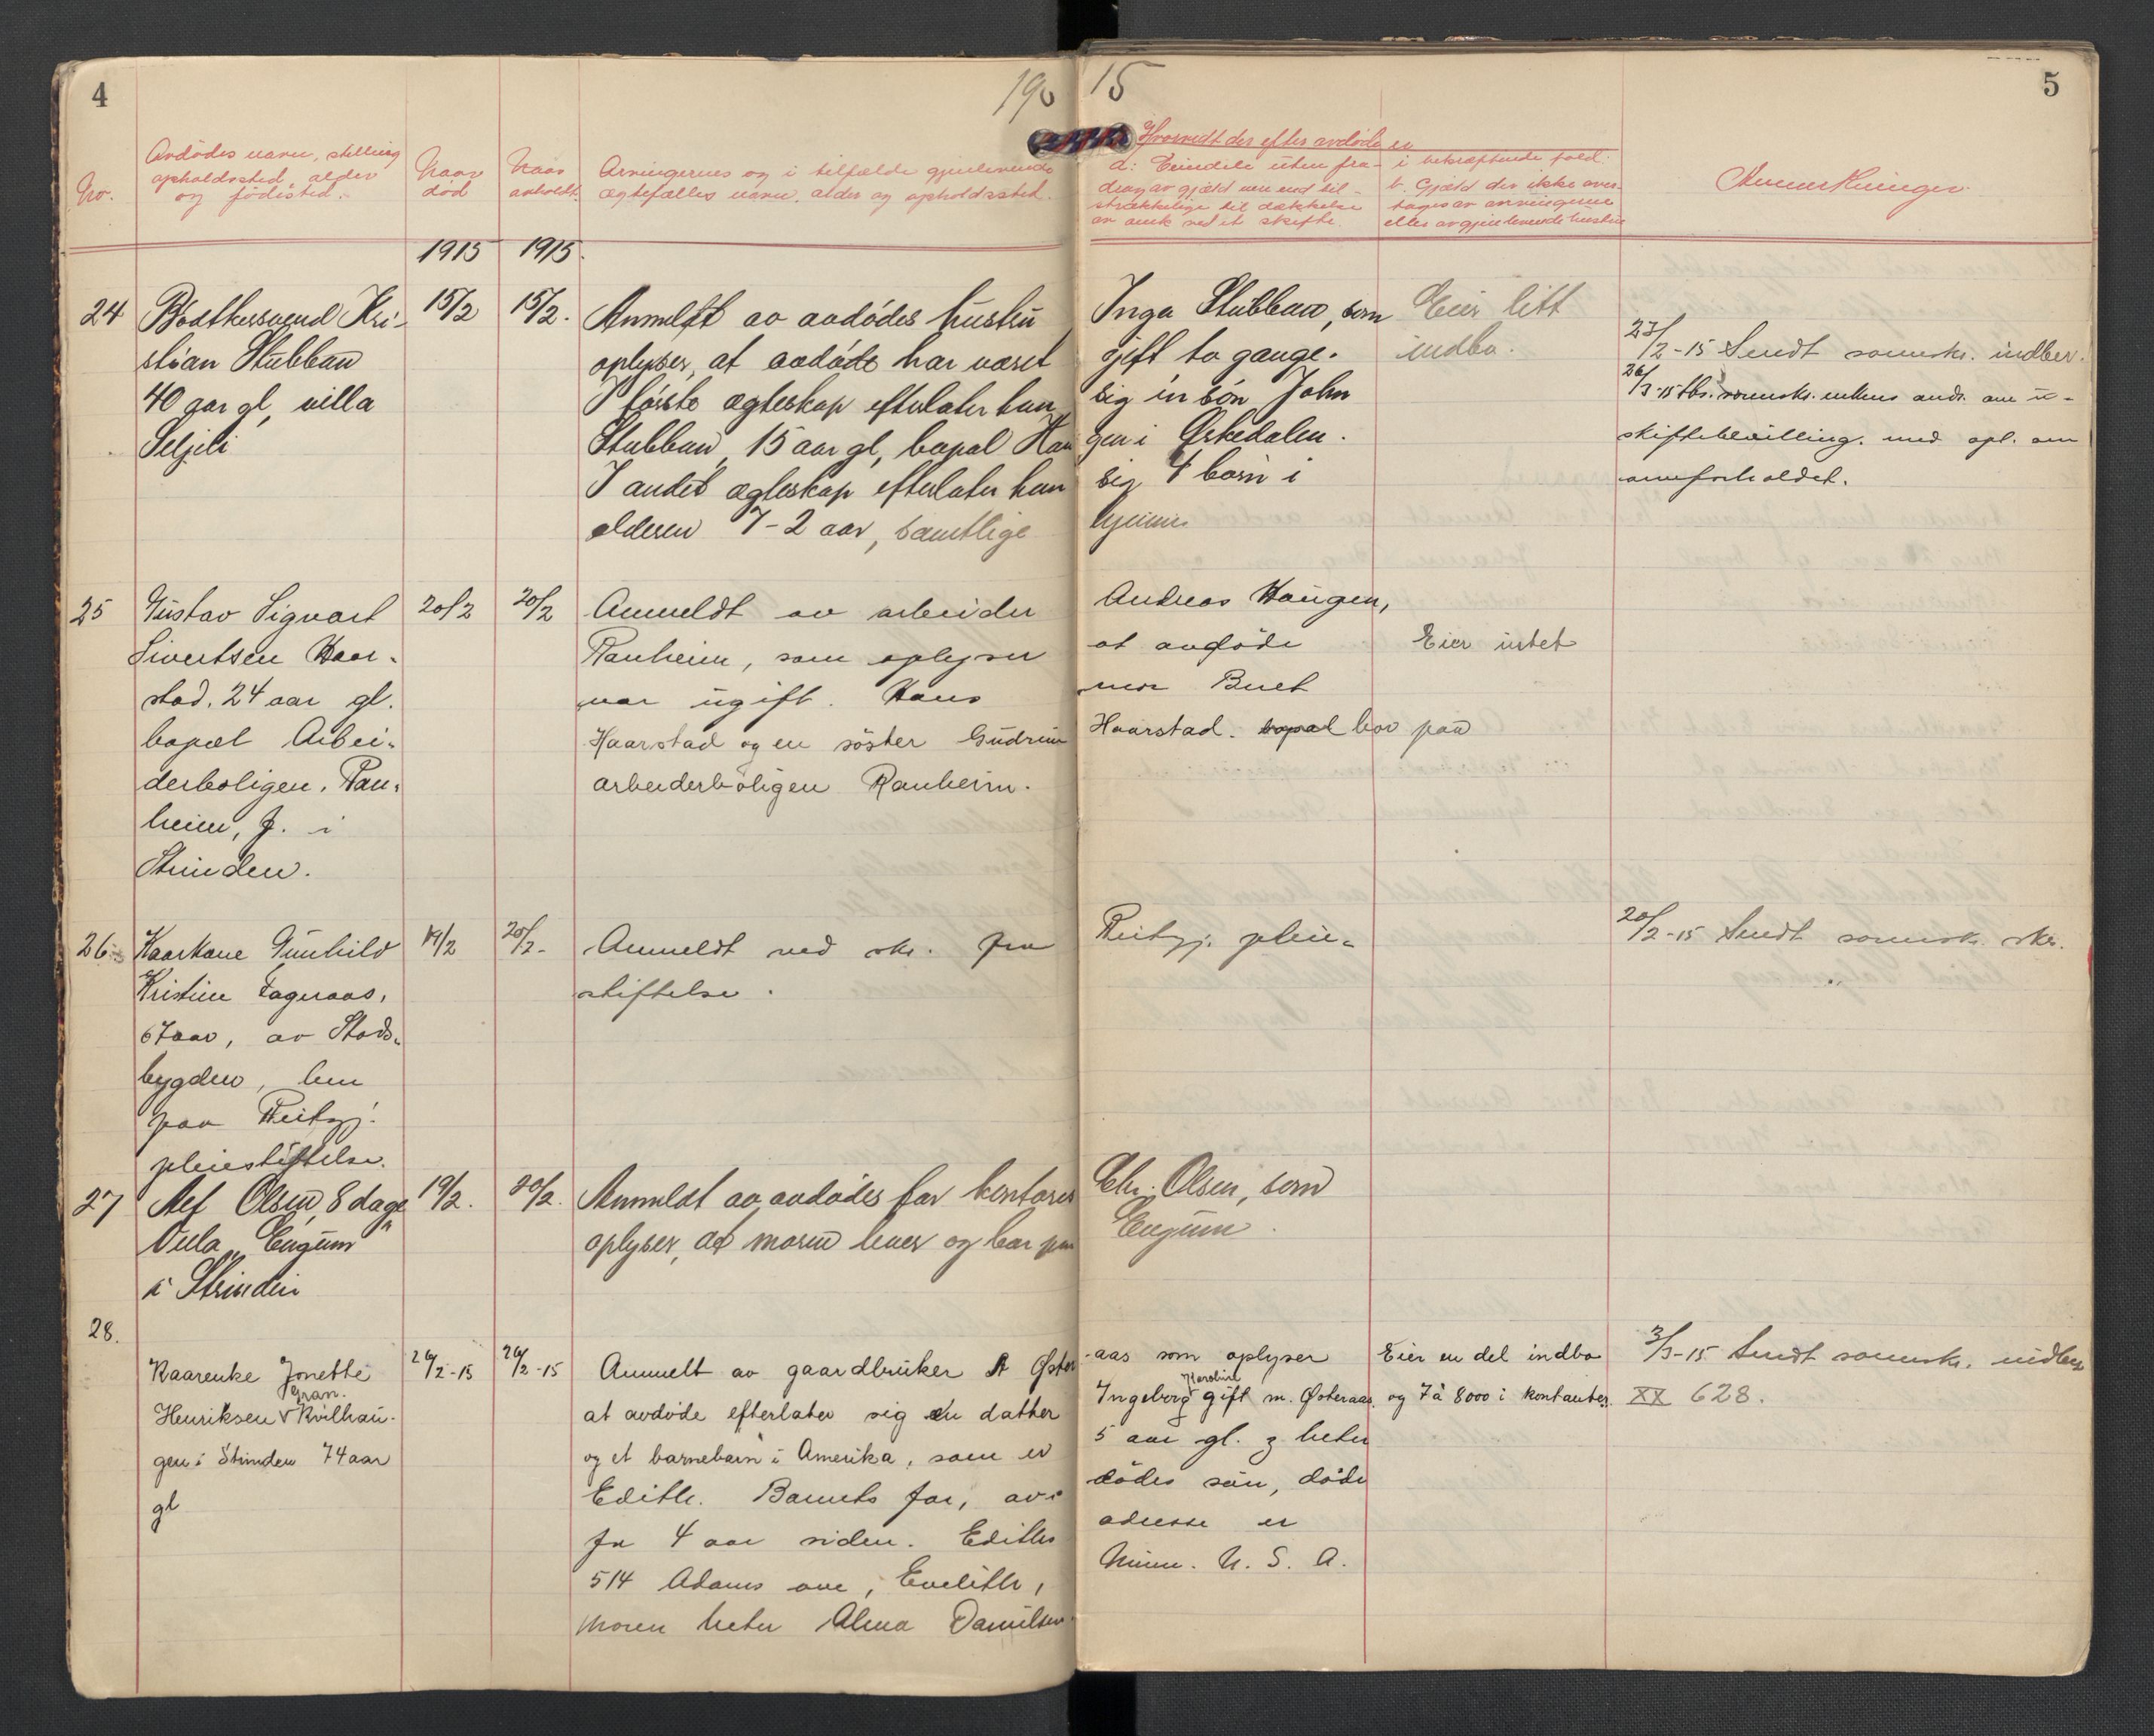 4
19015
5
No.
Avdødes navn, stilling
opholdssted, alder
og fødested.
Naar
død
Naar
anholdt.
Arvingernes og i tilfælde gjenlevende
ægtefælles navn, alder og opholdssted.
Hvorvidt der efter avdøde er
a: Eiendele uten fra-
drag av gjæld men end til-
strækkelige til dækkelse
av omk ved et skifte.
i bekræftende fald:
b. Gjæld der ikke over-
tages av arvingerne
eller av gjenlevende hustru
Anmerkninger.
1915
1915.
24
Bødtkersvend Kri-
stian Stubban
40 aar gl, villa
Seljeli
15/2
15/2.
Anmeldt av avdødes hustru Inga Stubban, som
oplyser, at avdøde har været gift to gange.
I første ægteskap efterlater han sig en søn John
Stubban, 15 aar gl, bopal Haugen i Ørkedalen.
I andet ægteskap efterlater han sig 4 børn i
alderen 7-2 aar, samtlige hjemme
Eier litt
indbo.
27/2-15 Sendt sorensk. indber.
26/3-15 tbs. sorensk. enkens andr. om u-
skiftebevilling. med opl. om
arveforholdet.
25
Gustav Sigvart
Sivertsen Haar-
stad. 24 aar gl.
bopæl Arbei-
derboligen, Ran-
heim, f. i
Strinden.
20/2
20/2
Anmeldt av arbeider Andreas Haugen,
Ranheim, som oplyser at avdøde
var ugift. Hans mor Buet
Haarstad og en søster Gudrun Haarstad. bopæl bor paa
arbeiderboligen Ranheim.
Eier intet
26.
Kaarkone Gunhild
Kristine Fageraas,
67 aar, av Stads-
bygden, hen
paa Reitgj.
pleiestiftelse.
19/2
20/2-
Anmeldt ved skr. fra Reitgj. pleie-
stiftelse.
20/2-15 Sendt sorensk. skr.
27
Alf Olsen, 8 dage
Villa "Engum"
i Strinden
19/2.
20/2.
Anmeldt av avdødes far kontorist Chr. Olsen, som
oplyser, at moren lever og bor paa Engum.
28.
Kaarenke Jonette
Gran.
Henriksen v Kvilhau-
gen i Strinden 74 aar
gl
26/2-15
26/2-15
Anmelt av gaardbruker A Øster-aas som oplyser
at avdøde efterlater sig en datter Ingeborg Karoline gift m. Østeraas.
og et barnebarn i Amerika, som er 5 aar gl. og heter
Edith. Barnets far, avdødes søn, døde
for 4 aar siden. Ediths adresse er
514 Adams ave, Eveleth, Minn. U. S. A.
Moren heter Alma Danielsen.
Eier en del indbo
og 7 à 8000 i kontanter.
3/3-15 Sendt sorensk. indber
XX 628.